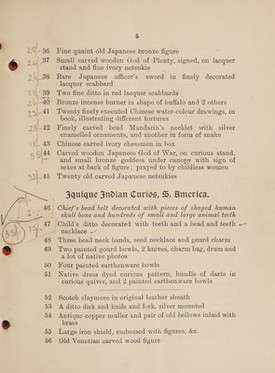 5
36 Fine quaint old Japanese bronze figure
37 Small carved wooden God of Plenty, signed, on lacquer
stand and fine ivory netsukie
38 Rare Japanese officer's sword in finely decorated
lacquer scabbard
39 Two fine ditto in red lacquer scabbards
40 Bronze incense burner in shape of buffalo and 2 others
41 Twenty finely executed Chinese water-colour drawings, in
book, illustrating different tortures
42 Finely carved bead Mandarin's necklet with silver
enamelled ornaments, and another in form of snake
43 Chinese carved ivory chessmen in box
44 Carved wooden Japanese God of War, on curious stand,
and small bronze goddess under canopy with sign of
sexes at back of figure; prayed to by childless women
45 Twenty old carved Japanese netsukies
Iquique Indian Curios, S. America.
46 Chief's bead belt decorated with pieces of shaped human
skull bone and hundreds of small and large animal teeth
47 Child's ditto decorated with teeth and a bead and teeth
necklace
48 Three bead neck bands, seed necklace and gourd charm
49 Two painted gourd bowls, 2 knives, charm bag, drum and
a lot of native photos
50 Four painted earthenware bowls
51 Native dress dyed curious pattern, bundle of darts in
curious quiver, and 2 painted earthenware bowls
52 Scotch claymore in original leather sheath
53 A ditto dick and knife and fork, silver mounted
54 Antique copper muller and pair of old bellows inlaid with
brass
55 Large iron shield, embossed with figures, &c.
56 Old Venetian carved wood figure